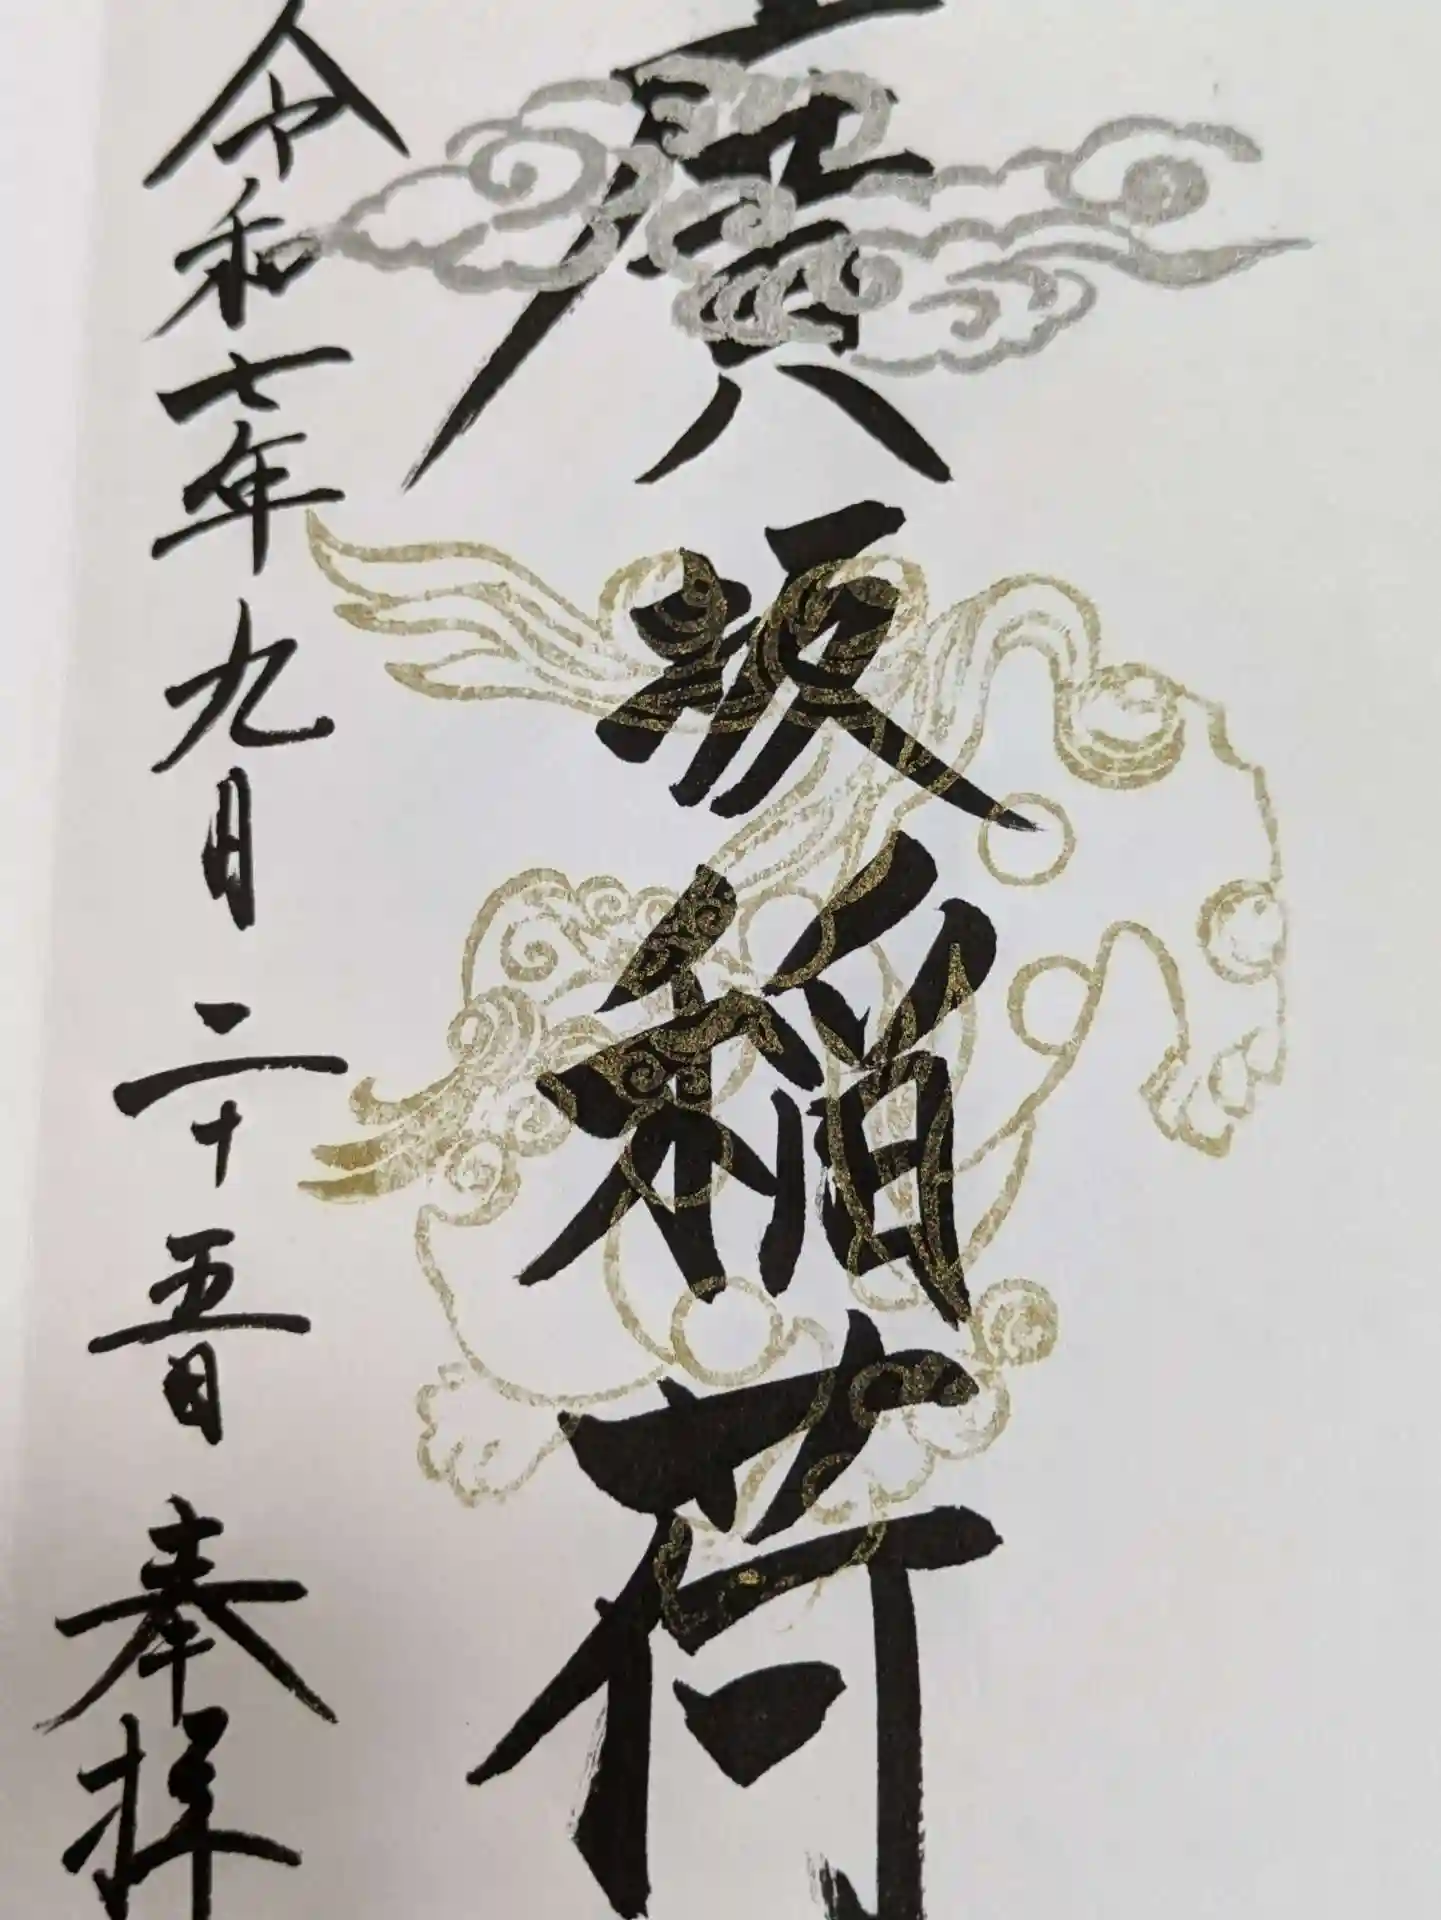 廣坂稲荷
令和七年九月二十五日 奉拝